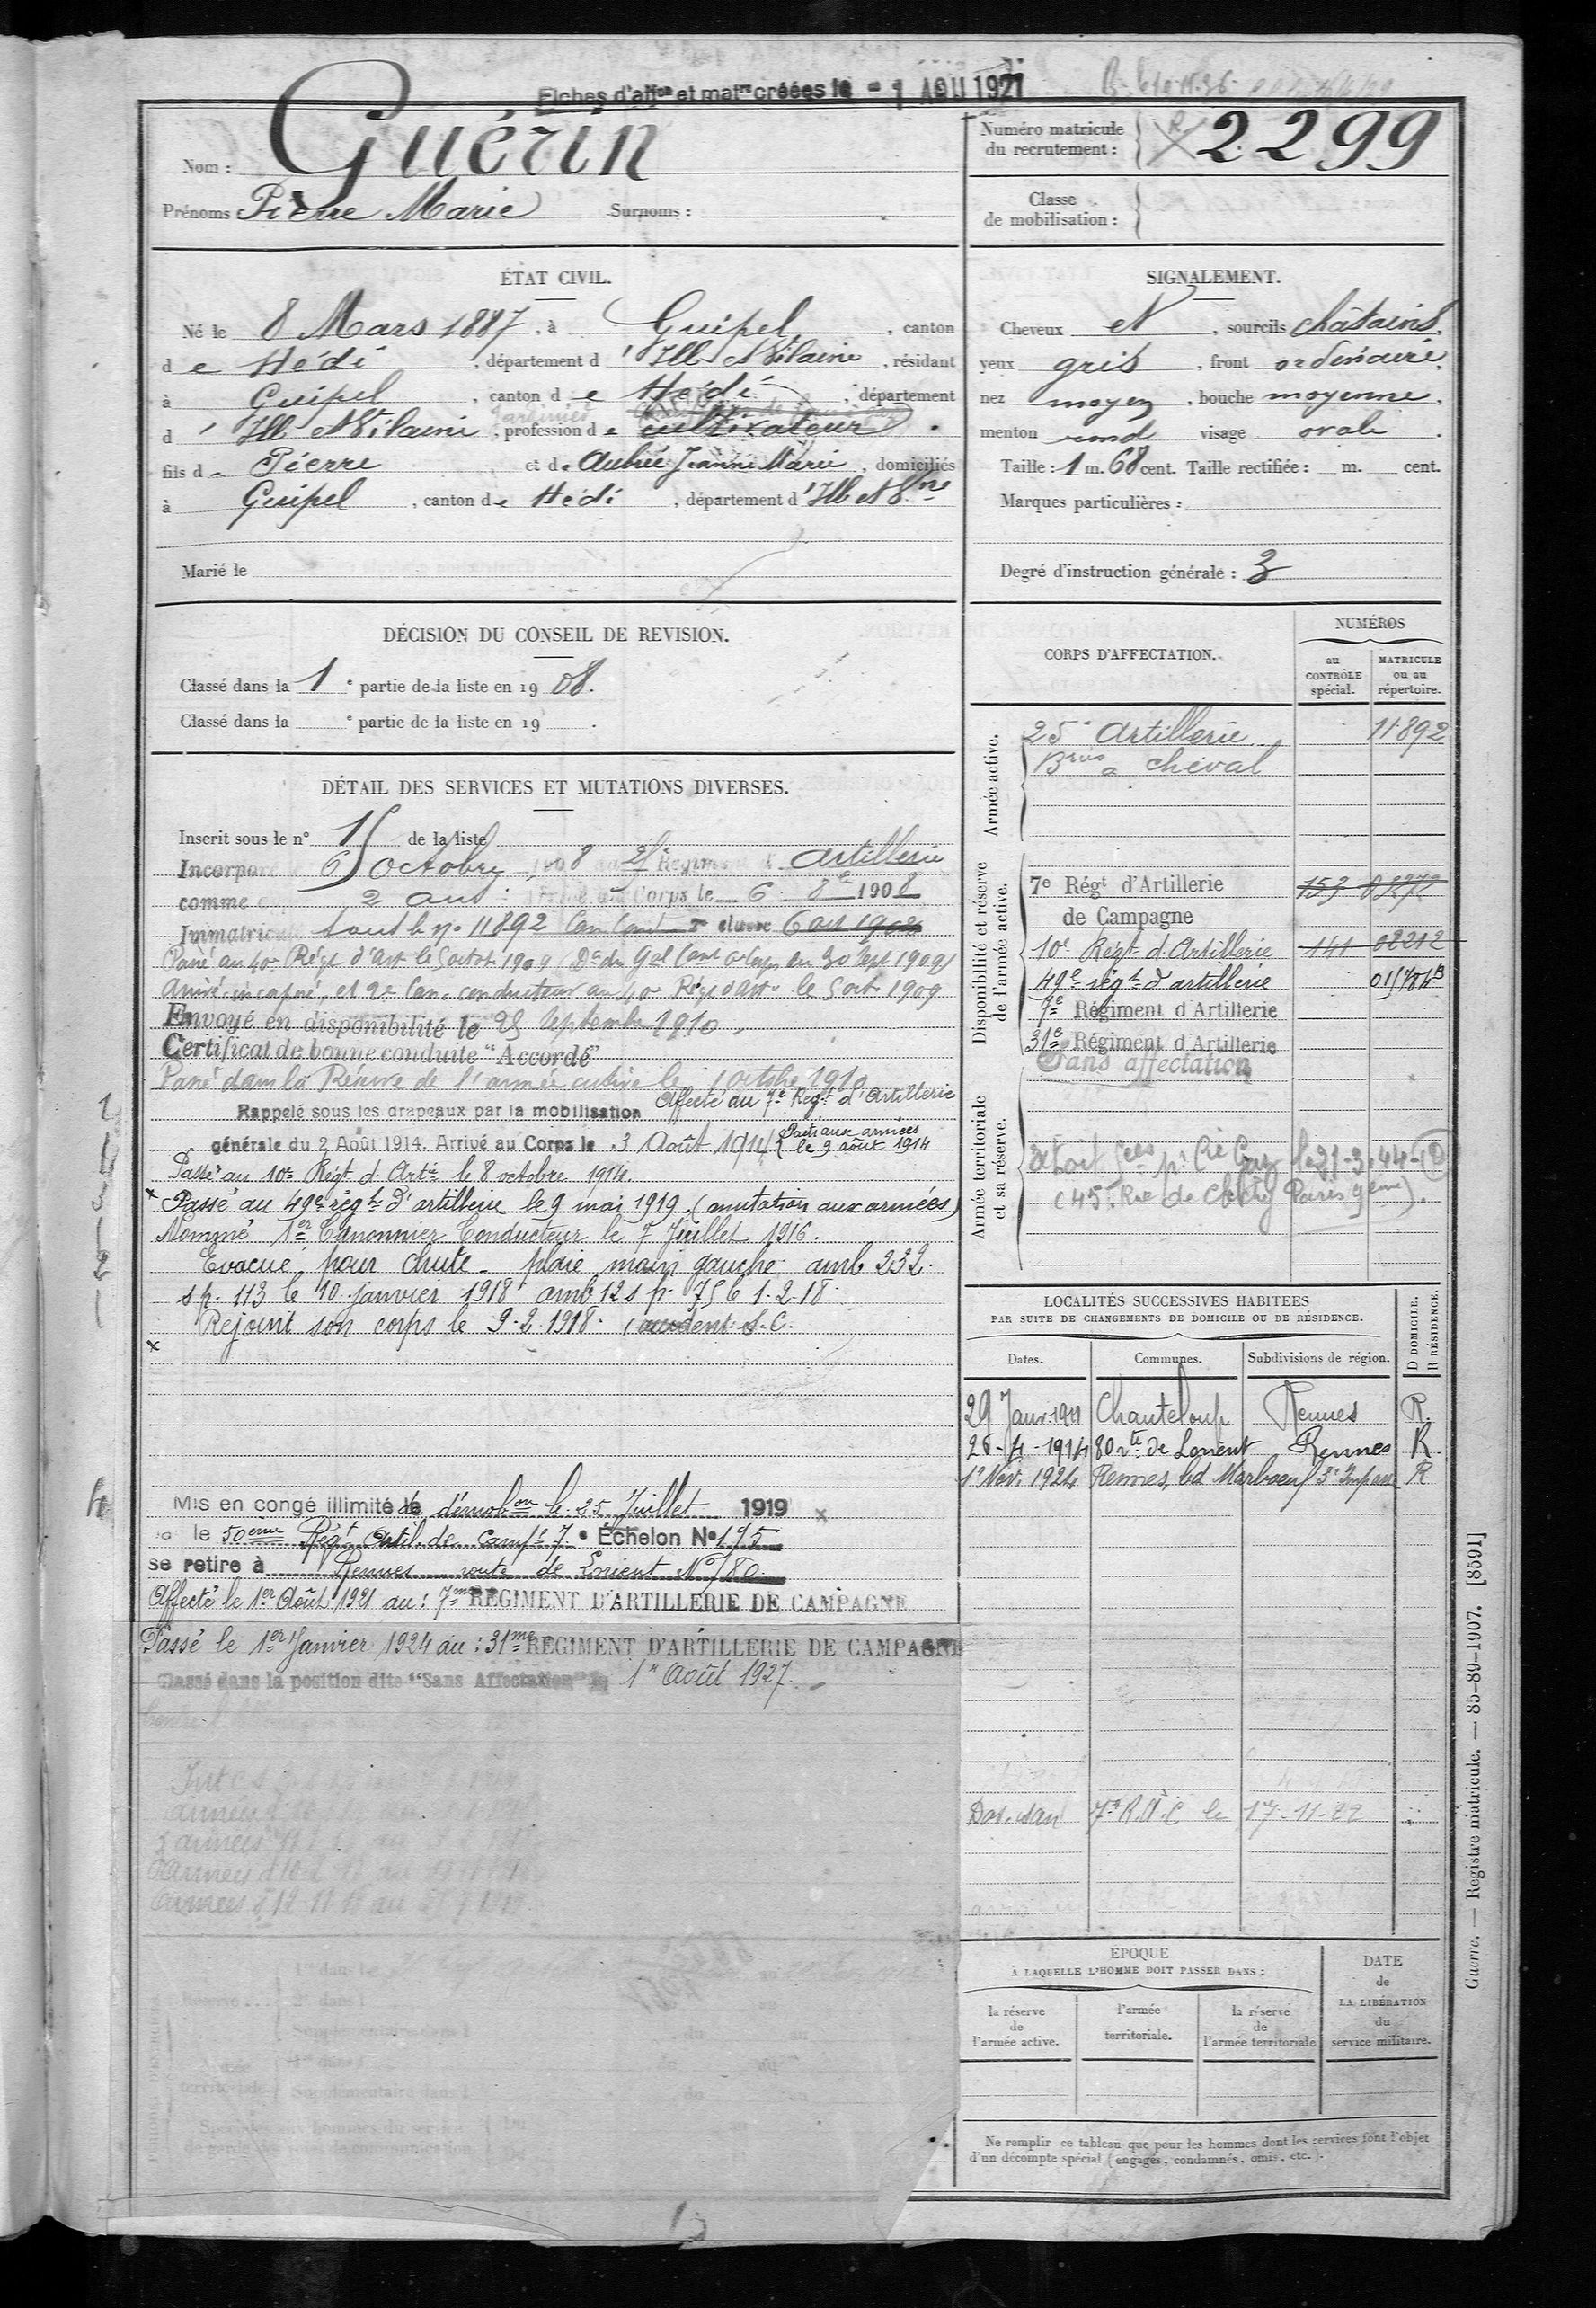 Fiches d'affon et matre créées le - 1 AOU 1927
Nom : Guérin
Prénoms : Pierre Marie Surnoms :
Numéro matricule du recrutement : 2299
Classe de mobilisation :
ÉTAT CIVIL.
Né le 8 Mars 1887, à Guipel, canton
de Hédé, département d'Ille et Vilaine, résidant
à Guipel, canton de Hédé, département
d'Ille et Vilaine, profession de cultivateur
fils de Pierre et de Aubrée Jeanne Marie, domiciliés
à Guipel, canton de Hédé, département d'Ille et Vne
Marié le
SIGNALEMENT.
Cheveux et, sourcils châtains,
yeux gris, front ordinaire,
nez moyen, bouche moyenne,
menton rond visage ovale.
Taille : 1 m. 68 cent. Taille rectifiée : m. cent.
Marques particulières :
Degré d'instruction générale : 3
DÉCISION DU CONSEIL DE REVISION.
Classé dans la 1e partie de la liste en 1908.
Classé dans la e partie de la liste en 19 .
DÉTAIL DES SERVICES ET MUTATIONS DIVERSES.
Inscrit sous le n° 15 de la liste
Incorporé 6 Octobre 1908 Régiment d'Artillerie
comme 2 ans Corps le 6 8bre 1908
Immatriculé sous le no 11892 Can Cond 2e classe 6 oct 1908
Passé au 40e Régt d'Art le 5 octob 1909 (Don du Gal Comt Corps du 30 Sept 1909)
Arrivé, incorporé, et 2e Can. conducteur au 40e Régt d'Artie le 5 oct 1909
Envoyé en disponibilité le 25 septembre 1910.
Certificat de bonne conduite "Accordé"
Passé dans la Réserve de l'armée active le 1 octobre 1910
Affecté au 7e Régt d'Artillerie
Rappelé sous les drapeaux par la mobilisation
générale du 2 Août 1914. Arrivé au Corps le 3 Août 1914 Parti aux armées le 9 août 1914
Passé au 10e Régt d'Artie le 8 octobre 1914.
Passé au 49e régt d'artillerie le 9 mai 1919. (mutation aux armées)
Nommé 1er Canonnier Conducteur le 7 Juillet 1916.
Evacué pour chute - plaie main gauche amb 232.
s.p. 113 le 10 janvier 1918 amb 12 s p. 756 1-2-18
Rejoint son corps le 9-2-1918. (accident: S.C.
Mis en congé illimité de démobon le 25 Juillet 1919
le 50ème Régt Artil. de Camp. 7e Échelon N° 195
se retire à Rennes route de Lorient N° 80
Affecté le 1er Août 1921 au : 7me REGIMENT D'ARTILLERIE DE CAMPAGNE
Passé le 1er Janvier 1924 au : 31me REGIMENT D'ARTILLERIE DE CAMPAGNE
Classé dans la position dite "Sans Affectation" le 1er Août 1927.
CORPS D'AFFECTATION.
NUMÉROS
au CONTRÔLE spécial.
MATRICULE ou au répertoire.
Armée active.
25e Artillerie 11892
Bries à cheval
Disponibilité et réserve de l'armée active.
7e Régt d'Artillerie 153 02972
de Campagne
10e Régt d'Artillerie 141 02212
49e régt d'artillerie
7e Régiment d'Artillerie
31e Régiment d'Artillerie
Sans affectation
Armée territoriale et sa réserve.
(45, Rue de Clichy Paris 9ème).
LOCALITÉS SUCCESSIVES HABITEES
PAR SUITE DE CHANGEMENTS DE DOMICILE OU DE RÉSIDENCE.
Dates. Communes. Subdivisions de région. D DOMICILE. R RÉSIDENCE.
29 Janv. 1911 Chanteloup Rennes R.
26-4-1914 80 rte de Lorient Rennes R.
1er Nov. 1924 Rennes, bd Marboeuf 3e Impasse R
7e R.A.C le 17-11-22
EPOQUE
À LAQUELLE L'HOMME DOIT PASSER DANS :
la réserve de l'armée active.
l'armée territoriale.
la réserve de l'armée territoriale
DATE de LA LIBÉRATION du service militaire.
Ne remplir ce tableau que pour les hommes dont les services font l'objet
d'un décompte spécial (engagés, condamnés, omis, etc.).
Guerre. — Registre matricule. — 85-89-1907. [8591]